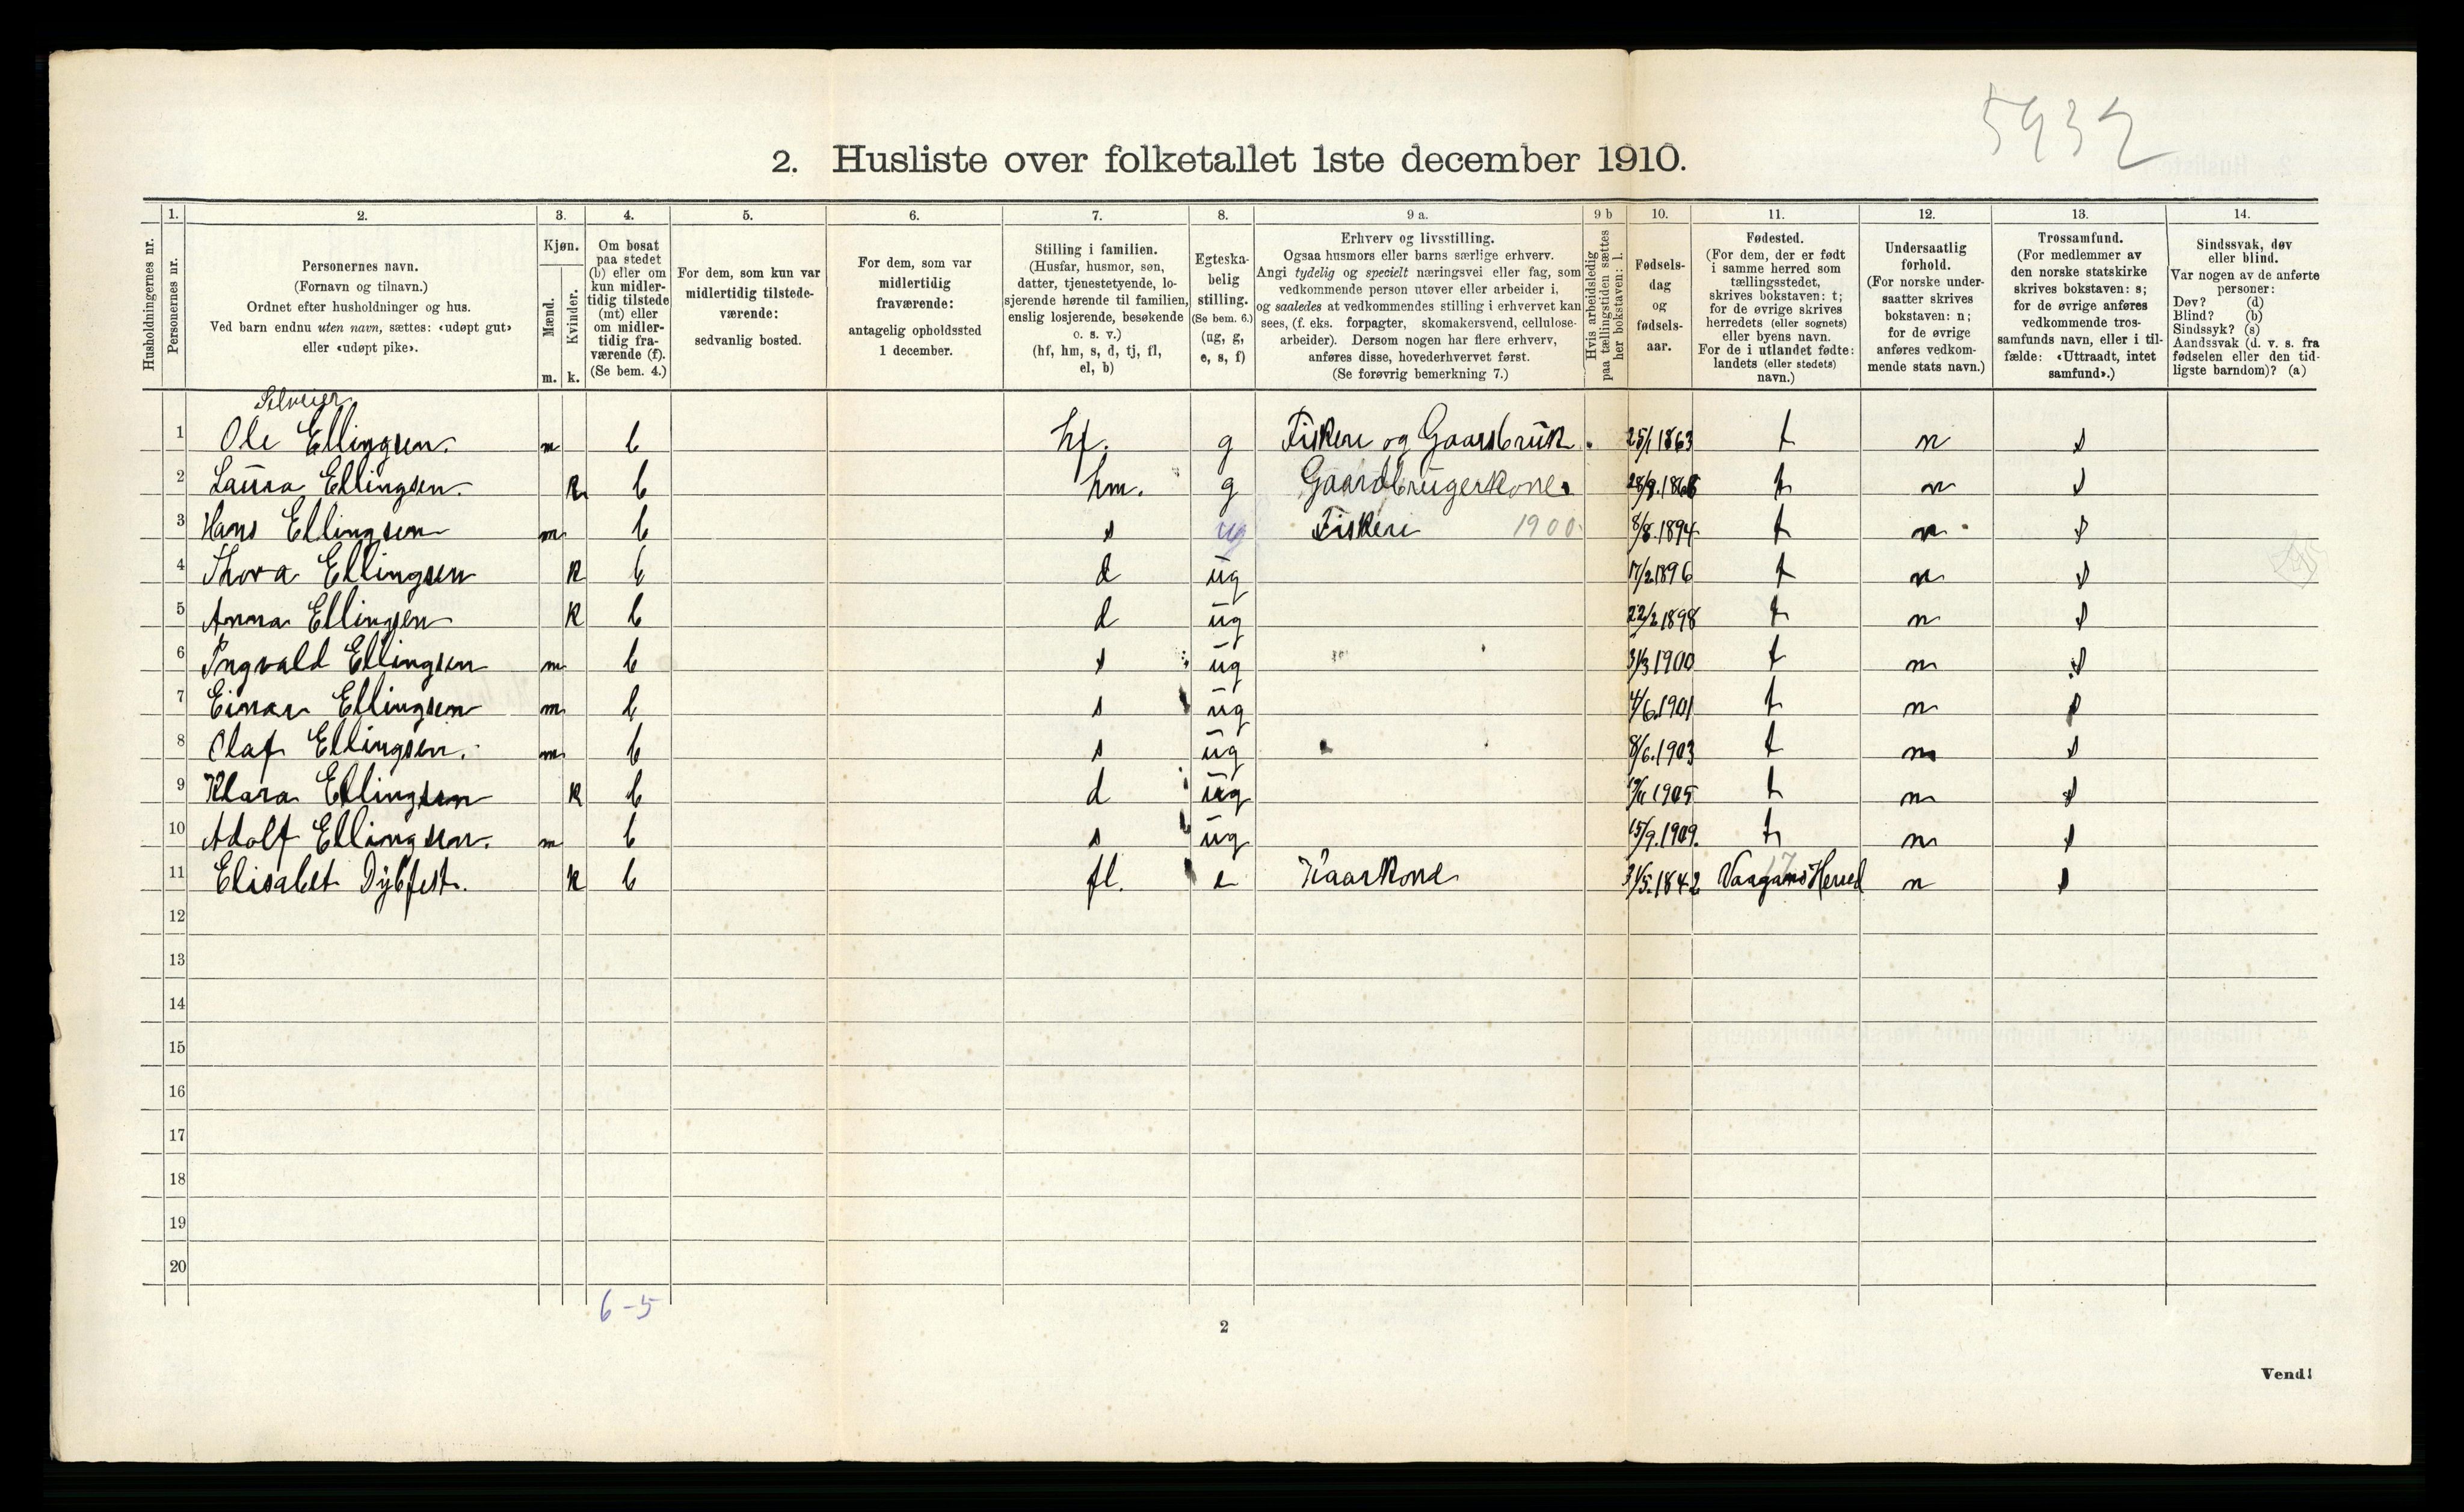 5932
2. Husliste over folketallet 1ste december 1910.
1. 2. 3. 4. 5. 6. 7. 8. 9 a. 9 b 10. 11. 12. 13. 14.
Husholdningernes nr.
Personernes nr.
Personernes navn.
(Fornavn og tilnavn.)
Ordnet efter husholdninger og hus.
Ved barn endnu uten navn, sættes: «udøpt gut»
eller «udøpt pike».
Kjøn.
Mænd.
Kvinder.
m. k.
Om bosat
paa stedet
(b) eller om
kun midler-
tidig tilstede
(mt) eller
om midler-
tidig fra-
værende (f).
(Se bem. 4.)
For dem, som kun var
midlertidig tilstede-
værende:
sedvanlig bosted.
For dem, som var
midlertidig
fraværende:
antagelig opholdssted
1 december.
Stilling i familien.
(Husfar, husmor, søn,
datter, tjenestetyende, lo-
sjerende hørende til familien,
enslig losjerende, besøkende
o. s. v.)
(hf, hm, s, d, tj, fl,
el, b)
Egteska-
belig
stilling.
(Se bem. 6.)
(ug, g,
e, s, f)
Erhverv og livsstilling.
Ogsaa husmors eller barns særlige erhverv.
Angi tydelig og specielt næringsvei eller fag, som
vedkommende person utøver eller arbeider i,
og saaledes at vedkommendes stilling i erhvervet kan
sees, (f. eks. forpagter, skomakersvend, cellulose-
arbeider). Dersom nogen har flere erhverv,
anføres disse, hovederhvervet først.
(Se forøvrig bemerkning 7.)
Hvis arbeidsledig
paa tællingstiden sættes
her bokstaven: l.
Fødsels-
dag
og
fødsels-
aar.
Fødested.
(For dem, der er født
i samme herred som
tællingsstedet,
skrives bokstaven: t;
for de øvrige skrives
herredets (eller sognets)
eller byens navn.
For de i utlandet fødte:
landets (eller stedets)
navn.)
Undersaatlig
forhold.
(For norske under-
saatter skrives
bokstaven: n;
for de øvrige
anføres vedkom-
mende stats navn.)
Trossamfund.
(For medlemmer av
den norske statskirke
skrives bokstaven: s;
for de øvrige anføres
vedkommende tros-
samfunds navn, eller i til-
fælde: «Uttraadt, intet
samfund».)
Sindssvak, døv
eller blind.
Var nogen av de anførte
personer:
Døv? (d)
Blind? (b)
Sindssyk? (s)
Aandssvak (d. v. s. fra
fødselen eller den tid-
ligste barndom)? (a)
Selveier
1 Ole Ellingsen. m b hf. g Fiskeri og Gaardsbruk. 25/1 1863 t n s
2 Laura Ellingsen. k b hm. g Gaardbrugerkone t n s
3 Hans Ellingsen m b s ug Fiskeri 1900 8/8.1894 t n s
4 Thora Ellingsen k b d ug 17/2 1896 t n s
5 Anna Ellingsen k b d ug 22/2 1898 t n s
6 Ingvald Ellingsen m b s ug 31/3 1900 t n s
7 Einar Ellingsen m b s ug 4/6.1901 t n s
8 Olaf Ellingsen. m b s ug 8/6.1903 t n s
9 Klara Ellingsen k b d ug t n s
10 Adolf Ellingsen. m b s ug 15/9.1909. t n s
11 Elisabet Dybfest. k b fl. e Kaarkone 31/5.1842 Vaagans Herred n s
12
13
14
15
16
17
18
19
20
6-5
2
Vend!